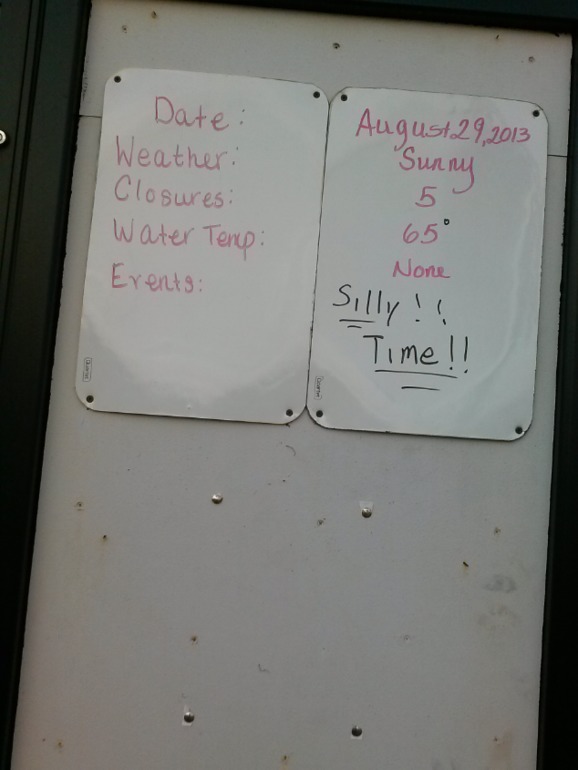 Date:
Weather:
Closures:
Water Temp:
Events:
August 29, 2013
Sunny
5
65°
None
Silly!!
Time!!